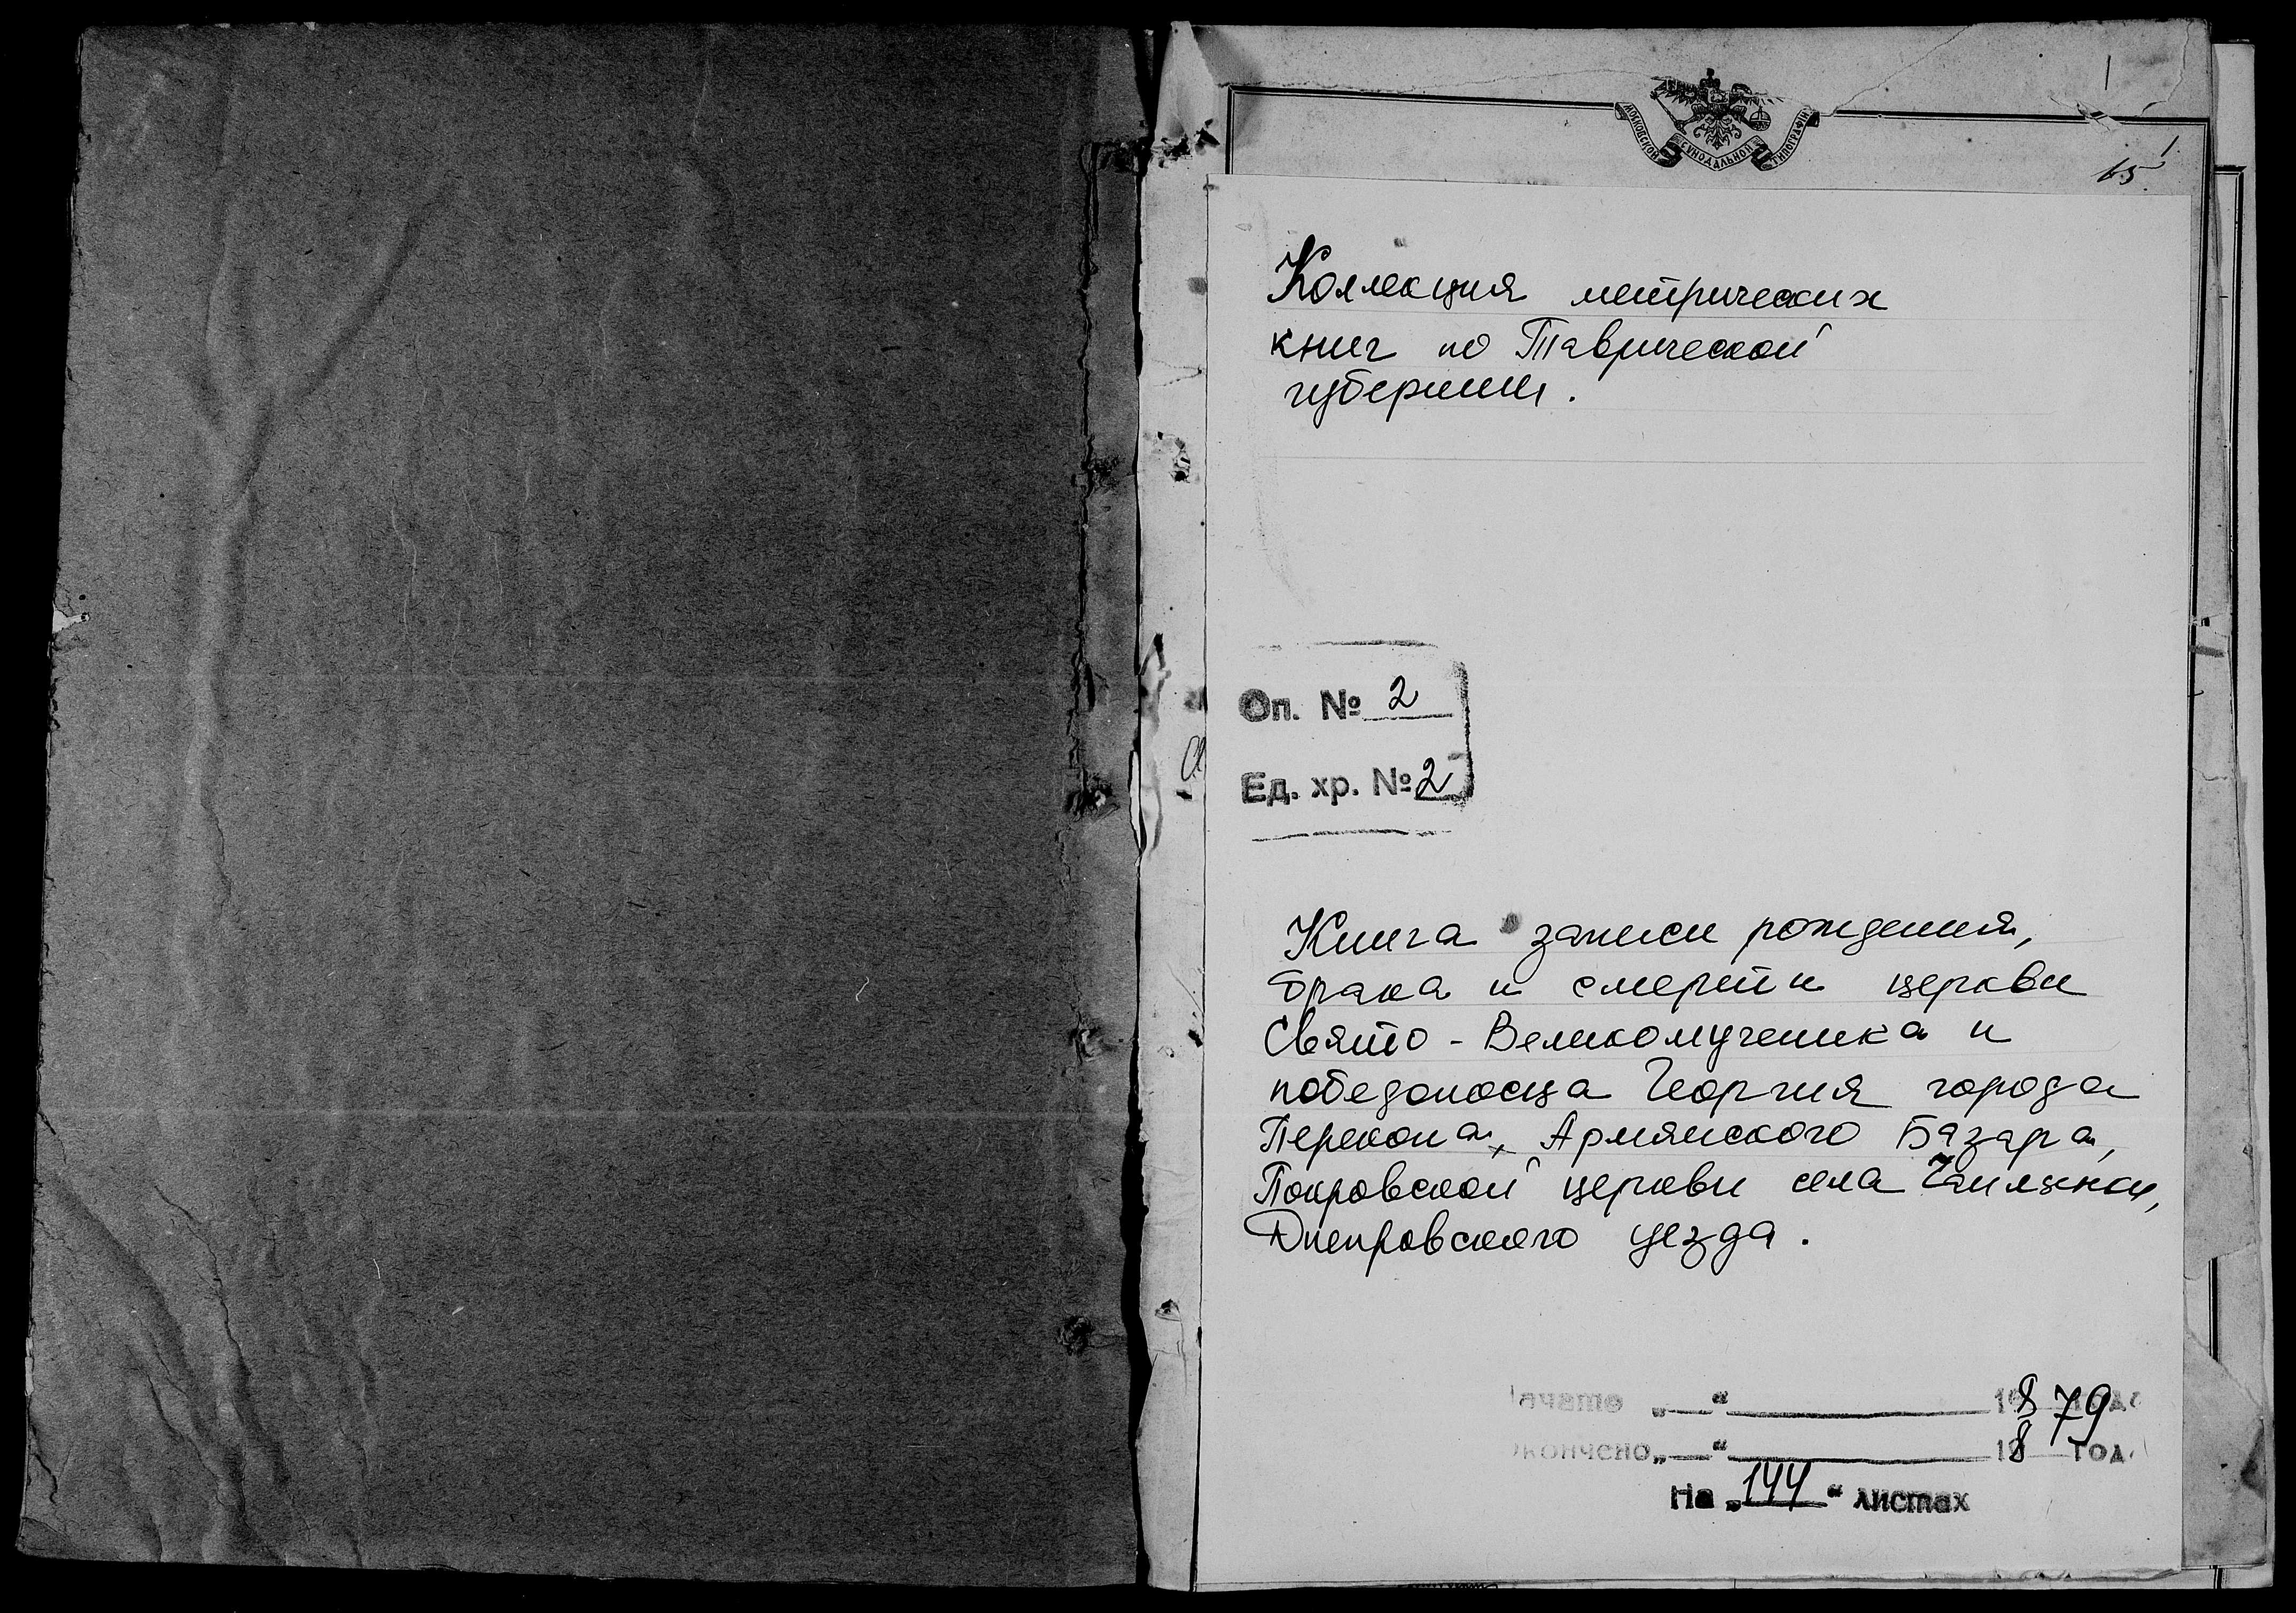 1
МОСКОВСКОЙ СѴНОДАЛЬНОЙ ТИПОГРАФІИ
1
Коллекция метрических
книг по Таврической
губернии.
Оп. № 2
Ед. хр. № 2
Книга записи рождения,
брака и смерти церкви
Свято-Великомученика и
победоносца Георгия города
Перекопа, Армянского Базара,
Покровской церкви села
Днепровского уезда.
Начато „ — “ 1879 года
Окончено „ — “ 18 года
На „144“ листах